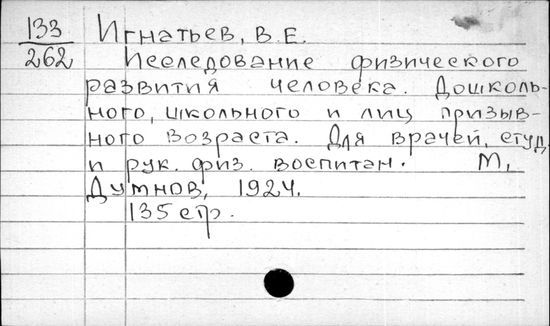 133 Игнатьев, В.Е.
262 Исследование физического
развития человека. Дошколь-
ного, школьного и лиц призыв-
ного возраста. Для врачей, студ.
и рук. физ. воспитан. М.,
Думнов, 1924.
135 стр.